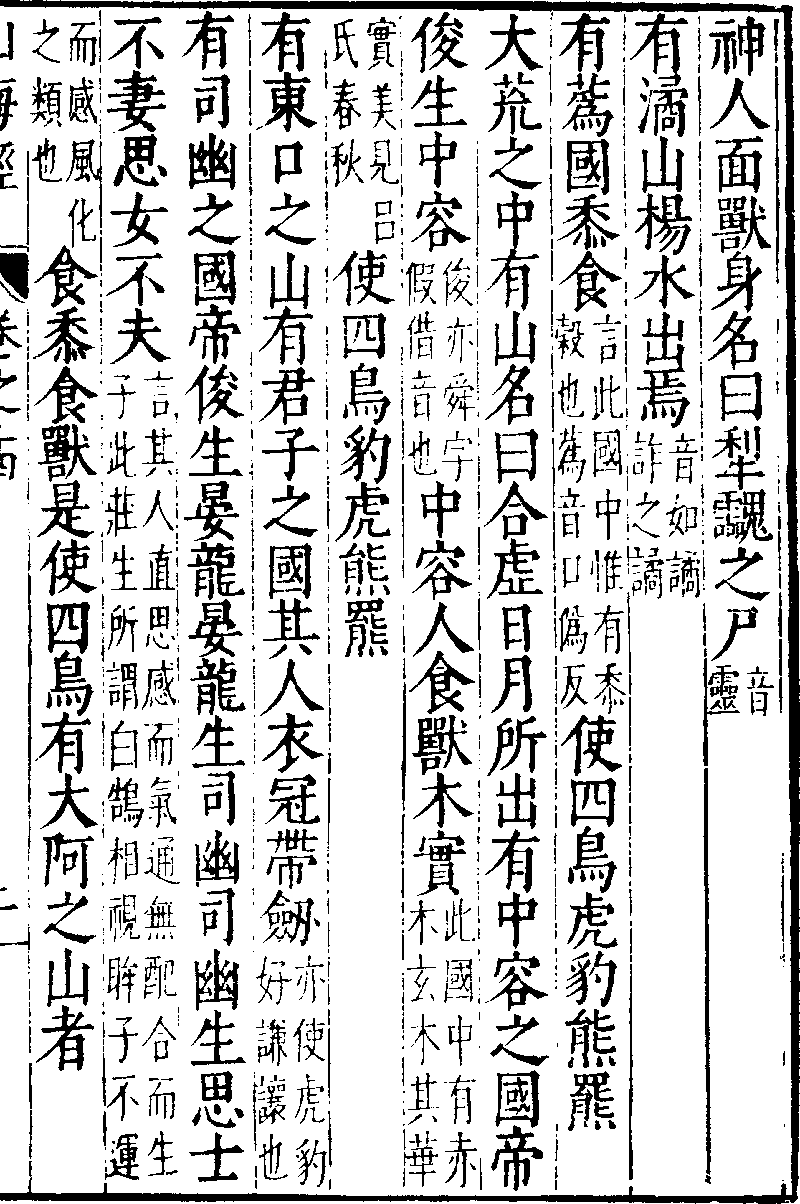 神人面獸身名曰犁𩴪之尸音靈
有潏山楊水出焉音如譎詐之譎
有蔿國黍食言此國中惟有黍穀也蔿音口僞反使四鳥虎豹熊羆
大荒之中有山名曰合虛日月所出有中容之國帝
俊生中容俊亦舜字假借音也中容人食獸木實此國中有赤木玄木其華
實美見呂氏春秋使四鳥豹虎熊羆
有東口之山有君子之國其人衣冠帶劒亦使虎豹好謙讓也
有司幽之國帝俊生晏龍晏龍生司幽司幽生思士
不妻思女不夫言其人直思感而氣通無配合而生子此莊生所謂白鵠相視眸子不運
而感風化之類也食黍食獸是使四鳥有大阿之山者
山海經 卷之十四